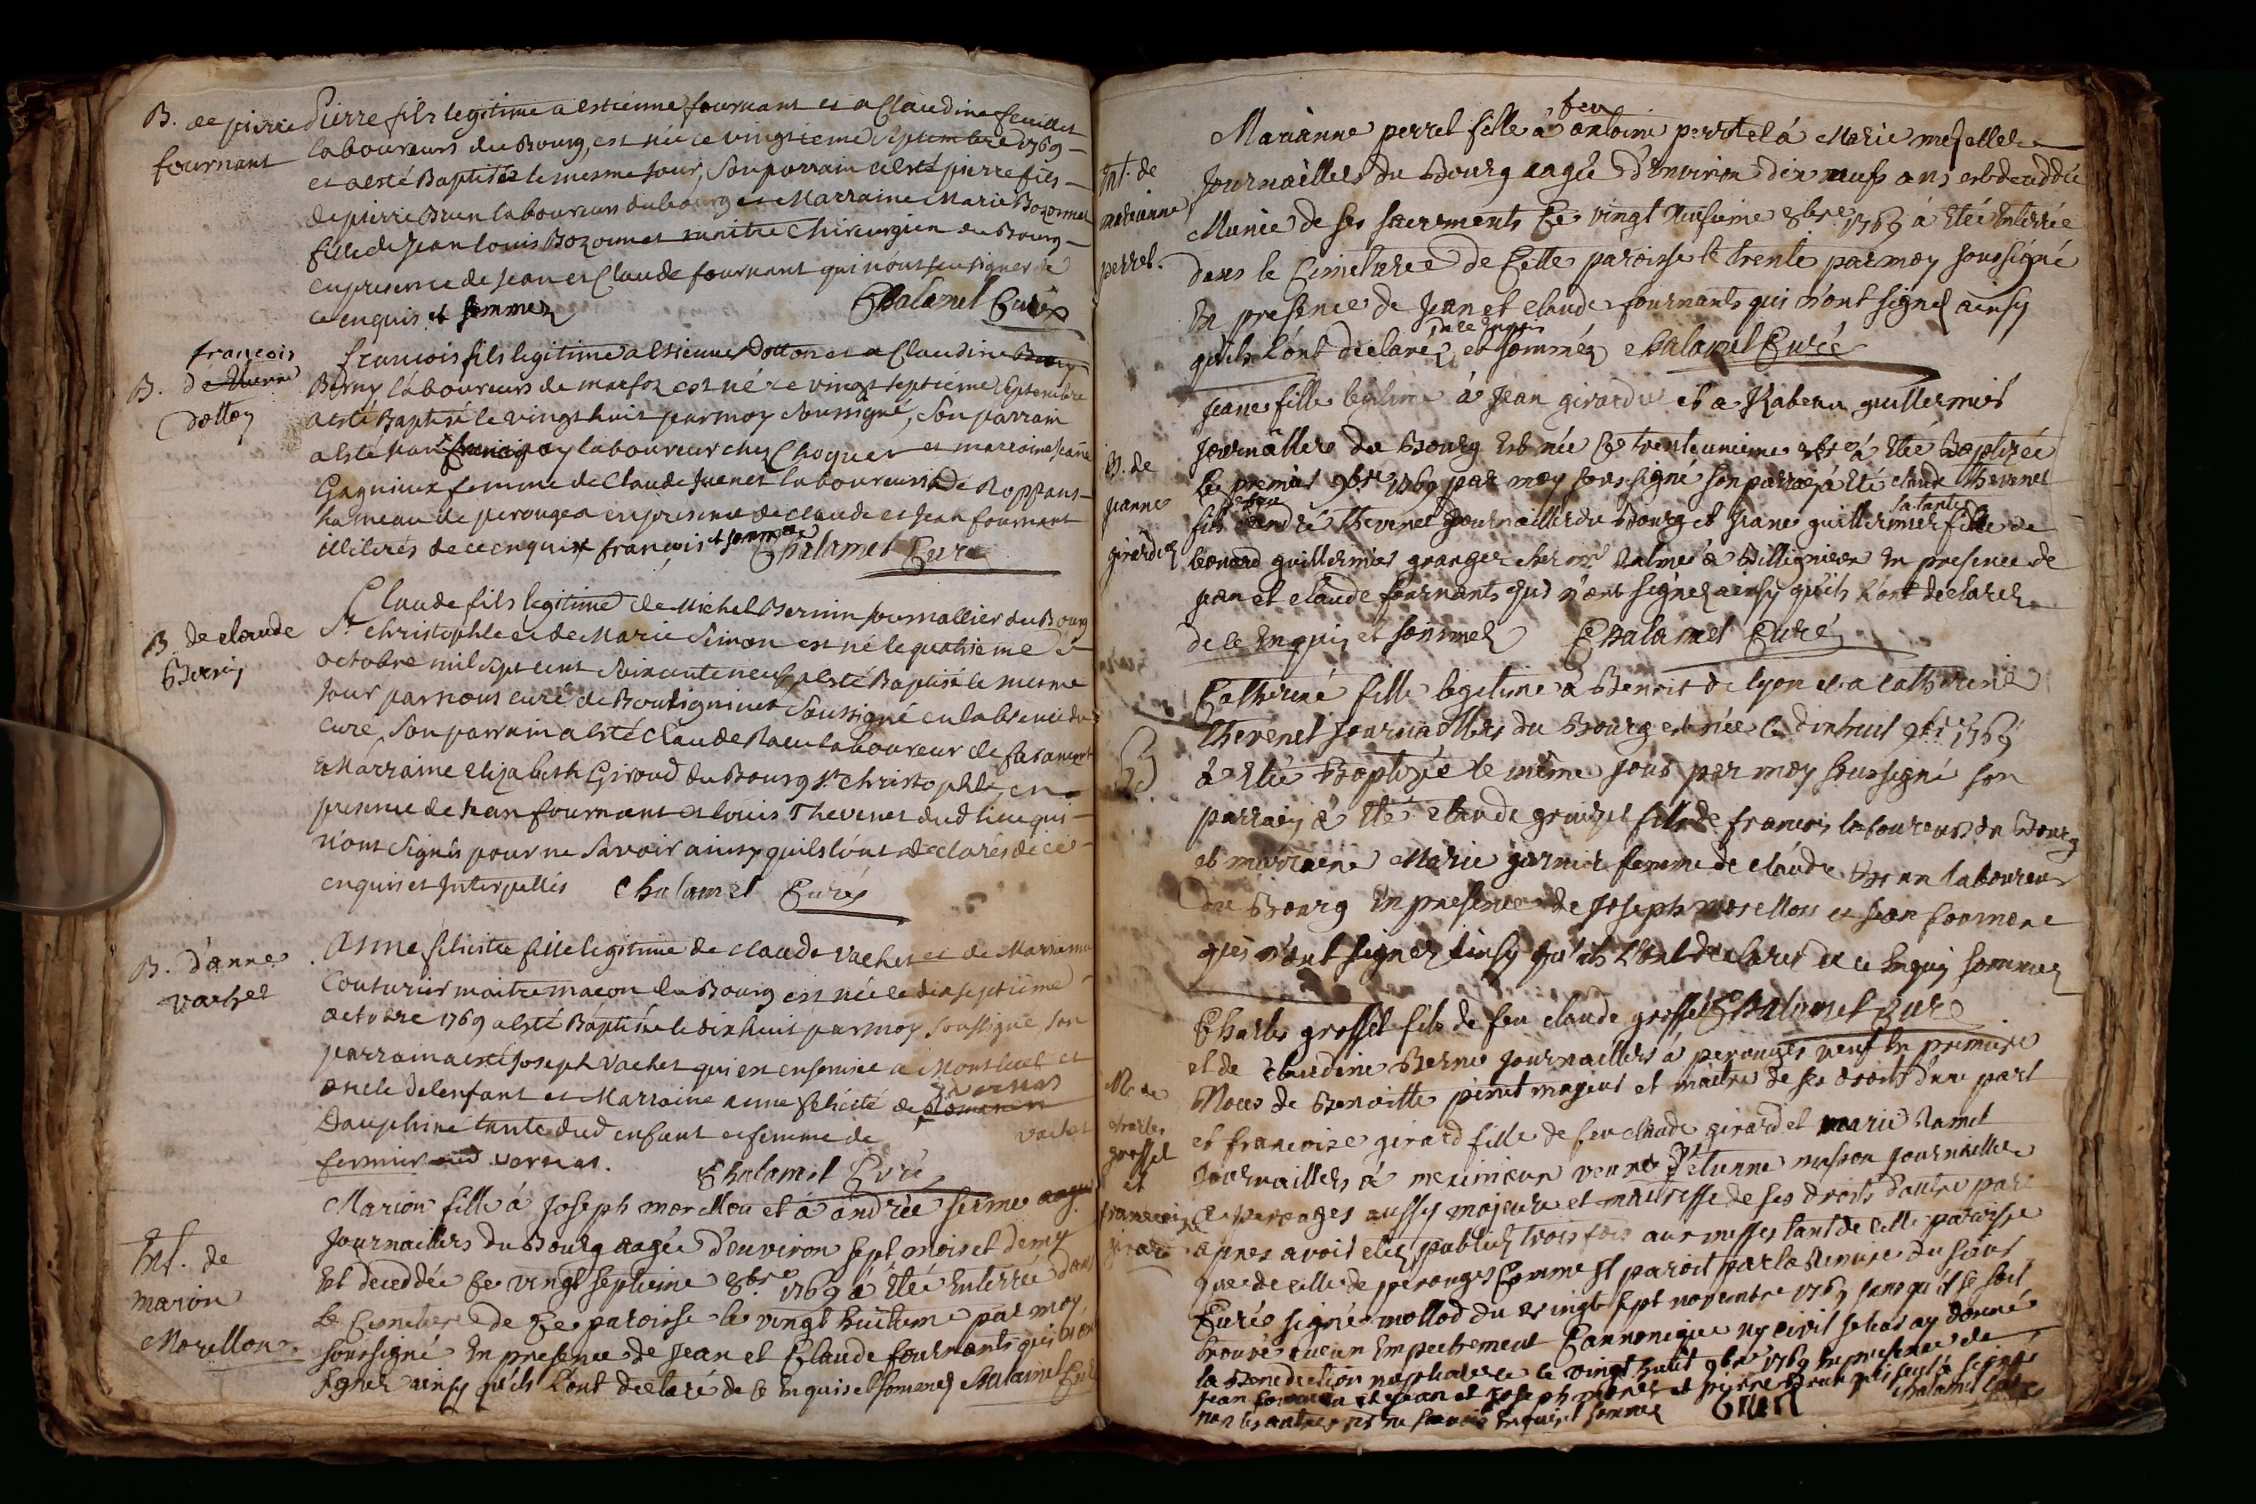 B. de pierre
fournant
Pierre fils legitime a estienne fournant et a Claudine
laboureurs du Bourg, est née ce vingtieme Septembre 1769
et a esté Baptisé le mesme jour, Son parrain a esté pierre fils
de pierre Brun laboureur du bourg et Marraine Marie Bozonnet
fille de Jean Louis Bozonnet maitre Chirurgien du Bourg
en presence de Jean et Claude fournant qui n'ont sçu signer de
ce enquis et sommez Chalamel Curé
françois
B. d'Etienne
Dotton
francois fils legitime a estienne Dotton et a Claudine
Berny laboureurs de est né ce vingt septieme Septembre
a esté Baptisé le vingt huit par moy Soussigné, Son parrain
a esté laboureur chez et marraine Jeane
Gagnieux femme de Claude Juenet laboureurs De
hameau de perouges en presence de claude et Jean fournant
illiterés de ce enquix françois et sommez Chalamel Curé
B. de claude
Bernin
Claude fils legitime de Michel Bernin journallier du Bourg
St Christophle et de Marie Simon est né le quatrieme
octobre mil sept cent Soixante neuf, a esté Baptisé le mesme
Jour par nous curé de Soussigné en labsence du
curé, Son parrain a esté Claude laboureur de faramant
& Marraine Elizabeth Giroud du Bourg St Christophle, en
presence de Jean fournant et louis Thevenet dud lieu qui
n'ont Signés pour ne Savoir ainsy quils l'ont declarés de ce
enquis et Interpellés Chalamel Curé
B. d'anne
vachet
Anne felicitée fille legitime de claude vachet et de Marianne
Couturier maitre macon du Bourg est née le dix septieme
octobre 1769 a esté Baptisée le dix huit par moy Soussigné, Son
parrain a esté Joseph Vachet qui en a Montluel et
oncle de lenfant et Marraine anne felicité de
Dauphiné tante dud enfant et femme de vachet
fermier vernas.
Chalamel Curé
Ent. de
marion
Morellon
Marion fille à Joseph morellon et à andrée
Journailliers du Bourg aagée d'environ sept mois et demy
Est deceddée ce vingt septieme 8bre 1769 à Etée Enterrée dans
le Cimetiere de Ce paroisse le vingt huitieme par moy
soussigné En presence de Jean et Claude fournants qui n'ont
signez ainsy qu'ils L'ont declaré de ce Enquis et sommez Chalamel Curé
Ent. de
marianne
perret.
feu
Marianne perret fille à antoine perret et à Marie
Journailliers du Bourg aagée D'environ Dix neuf ans est deceddée
Munie de ses sacrements Ce vingt 8bre 1769 à Etée Enterrée
dans le Cimetiere de Cette paroisse le trente par moy soussigné
En presence de Jean et claude fournants qui n'ont signez ainsy
de ce Enquis
qu'ils L'ont declarez et sommez Chalamel Curé
B. de
jeanne
girardet
Jeane fille legitime à Jean girardet et a guillermet
Journailliers du Bourg Est née Ce trente unieme 8bre à Etée Baptizée
Le premier 9bre 1769 par moy soussigné son parrain à Eté claude thevenet
fils andré thevenet Journaillier du Bourg et Jeane guillermet sa tante fille de
leonard guillermet granger à Villignieu En presence de
jean et claude fournants qui n'ont signez ainsy qu'ils L'ont declarez
de ce Enquis et sommez Chalamel Curé
B
Catherine fille legitime à Benoit de lyon et a catherine
thevenet journailliers du Bourg est née le dix huit 9bre 1769
à Etée Baptizée le même jour par moy soussigné son
parrain à Eté claude fils de françois laboureurs du Bourg
et marraine Marie garnier femme de claude Brun laboureur
du Bourg En presence de Joseph morellon et Jean fournant
qui n'ont signez ainsy qu'ils L'ont declarez de ce Enquis sommez
Chalamel Curé
M. de
charles
grosset
et
francoise
girard
Charles grosset fils de feu claude grosset
et de claudine Berne journailliers à perouges veuf En premiere
Noces de Benoitte majeur et maitre de ses droits d'une part
et francoise girard fille de feu claude girard et marie Ramet
journailliers à meximieux veuve D'etienne musson journaillier
à perouges aussy majeure et maitresse de ses droits d'autre part
apres avoir etez publiez trois fois aux messes tant de cette paroisse
que de celle de perouges Comme Il paroit par la Remise du sieur
Curé signé mollod du vingt sept novembre 1769 sans qu'il se soit
trouvé aucun Empechement Cannonique ny civil je leur ay donné
la Benediction nuptiale le vingt huit 9bre 1769 En presence de
jean fournan et jean et Joseph et pierre Brun signé
non les autres pour ne sçavoir Enquis et sommez Brun Chalamel Curé